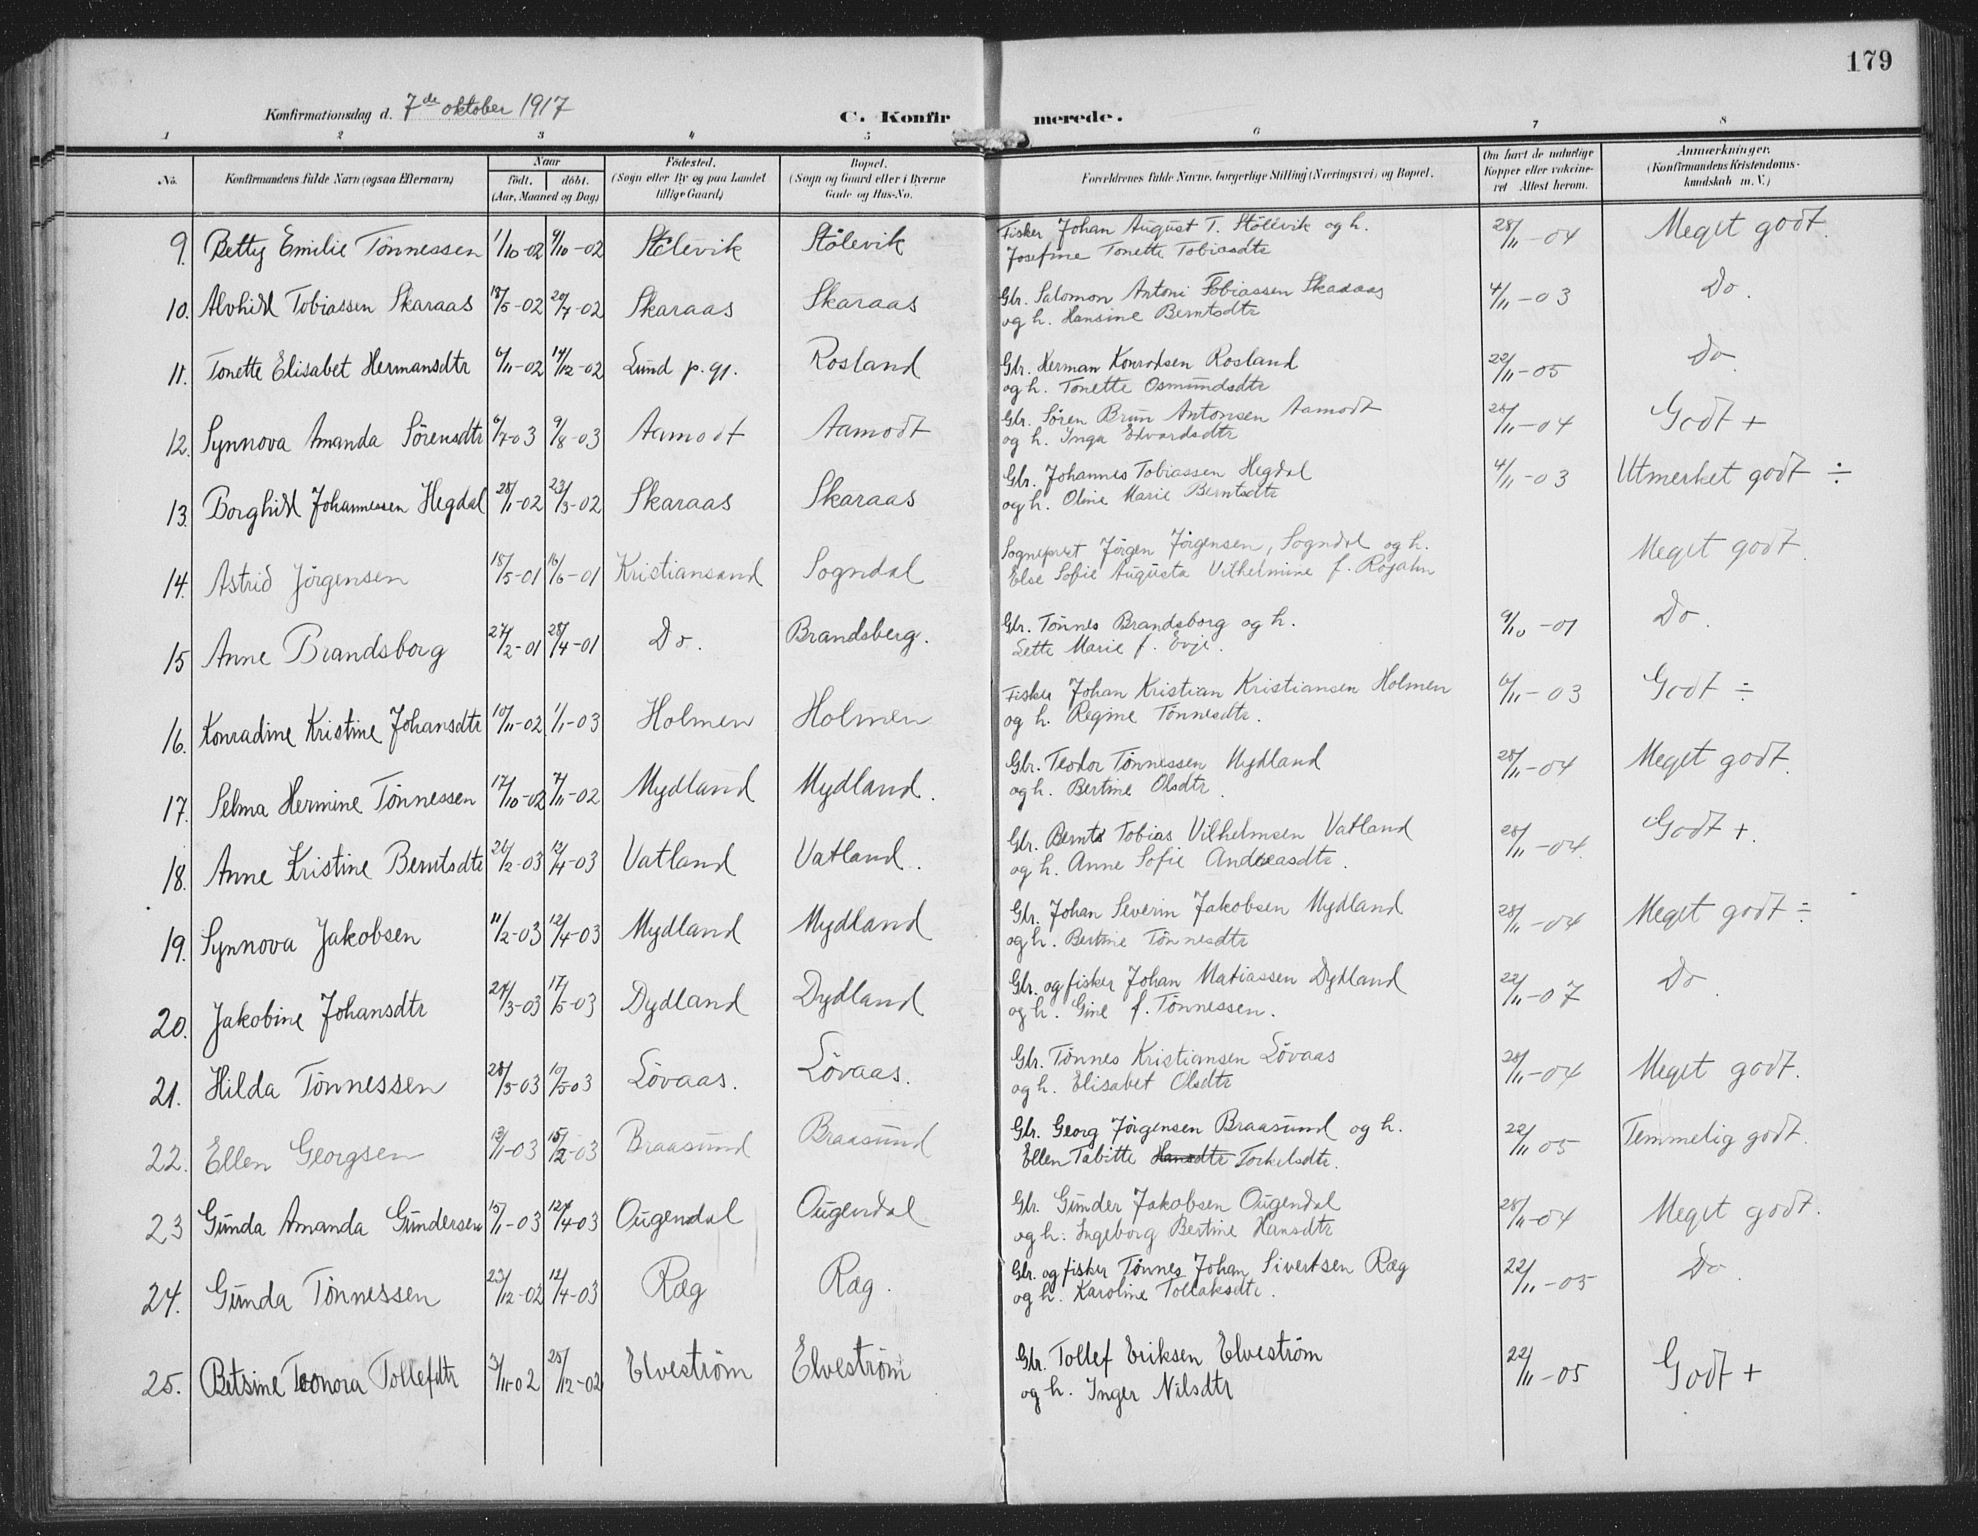 179
Konfirmationsdag d. 7de oktober 1917 C. Konfirmerede.
1 2 3 4 5 6 7 8
No. Konfirmandens fulde Navn (ogsaa Efternavn) Naar født. døbt. (Aar, Maaned og Dag) Fødested. (Sogn eller By og paa Landet tillige Gaard) Bopæl. (Sogn og Gaard eller i Byerne Gade og Hus-No. Forældrenes fulde Navne, borgerlige Stilling (Næringsvei) og Bopæl. Om havt de naturlige Kopper eller vakcineret Attest herom. Anmærkninger. (Konfirmandens Kristendomskundskab m. V.)
9. Betty Emilie Tønnessen 1/10-02 9/10-02 Stölevik Stölevik Fisker Johan August T. Stölevik og h. 28/11-04 Meget godt.
Josefine Tonette Tobiasdtr
10. Alvhild Tobiassen Skaraas 18/5-02 20/7-02 Skaraas Skaraas Gbr. Salomon Antoni Tobiassen Skaraas 4/11-03 Do.
og h. Hansine Berntsdtr
11. Tonette Elisabet Hermansdtr 6/11-02 14/12-02 Lund p.gj. Rosland Gbr. Herman Konradsen Rosland 22/11-05 Do
og h. Tonette Osmundsdtr
12. Synnova Amanda Sörensdtr 6/7-03 9/8-03 Aamodt Aamodt Gbr. Sören Brun Antonsen Aamodt 28/11-04 Godt +
og h. Inga Edvardsdtr
13. Borghild Johannessen Hegdal 28/1-02 23/3-02 Skaraas Skaraas Gbr. Johannes Tobiassen Hegdal 4/11-03 Utmerket godt ÷
og h. Oline Marie Berntsdtr
14. Astrid Jörgensen 18/5-01 16/6-01 Kristiansand Sogndal Sogneprest Jörgen Jörgensen, Sogndal og h. Meget godt.
Else Sofie Augusta Vilhelmine f. Rojahn
15 Anne Brandsborg 27/2-01 28/4-01 Do. Brandsberg. Gbr. Tönnes Brandsborg og h. 9/10-01 Do.
Sette Marie f. Evje.
16. Konradine Kristine Johansdtr 10/11-02 1/1-03 Holmen Holmen Fisker Johan Kristian Kristiansen Holmen 6/11-03 Godt ÷
og h. Regine Tönnesdtr.
17. Selma Hermine Tönnessen 17/10-02 7/11-02 Mydland Mydland. Gbr. Teodor Tönnessen Mydland 28/11-04 Meget godt.
og h. Bertine Olsdtr.
18. Anne Kristine Berntsdtr 26/2-03 12/4-03 Vatland Vatland. Gbr. Bernt Tobias Vilhelmsen Vatland 28/11-04. Godt +.
og h. Anne Sofie Andreasdtr.
19. Synnova Jakobsen 11/2-03 12/4-03 Mydland Mydland Gbr. Johan Severin Jakobsen Mydland 28/11-04 Meget godt ÷
og h. Bertine Tönnesdtr
20. Jakobine Johansdtr 24/3-03 17/5-03 Dydland Dydland Gbr. og fisker Johan Matiassen Dydland 22/11-07 Do.
og h. Gine f. Tönnessen.
21. Hilda Tönnessen 28/3-03 10/5-03 Lövaas. Lövaas. Gbr. Tönnes Kristiansen Lövaas 28/11-04 Meget godt.
og h. Elisabet Olsdtr
22. Ellen Georgsen 12/1-03 15/2-03 Braasund Braasund Gbr. Georg Jörgensen Braasund og h. 22/11 05 Temmelig godt.
Ellen Tabitte Hansdtr Torkelsdtr.
23 Gunda Amanda Gundersen 15/1-03 12/4-03 Ougendal Ougendal Gbr. Gunder Jakobsen Ougendal 28/11-04 Meget godt.
og h. Ingeborg Bertine Hansdtr
24. Gunda Tönnessen 23/12-02 12/4-03 Ræg Ræg. Gbr. og fisker Tönnes Johan Sivertsen Ræg 22/11-05 Do.
og h. Karoline Tollaksdtr.
25. Betsine Teonora Tollefsdtr 3/11-02 25/12-02 Elveström Elveström Gbr. Tollef Eriksen Elveström 22/11-05 Godt +
og h. Inger Nilsdtr